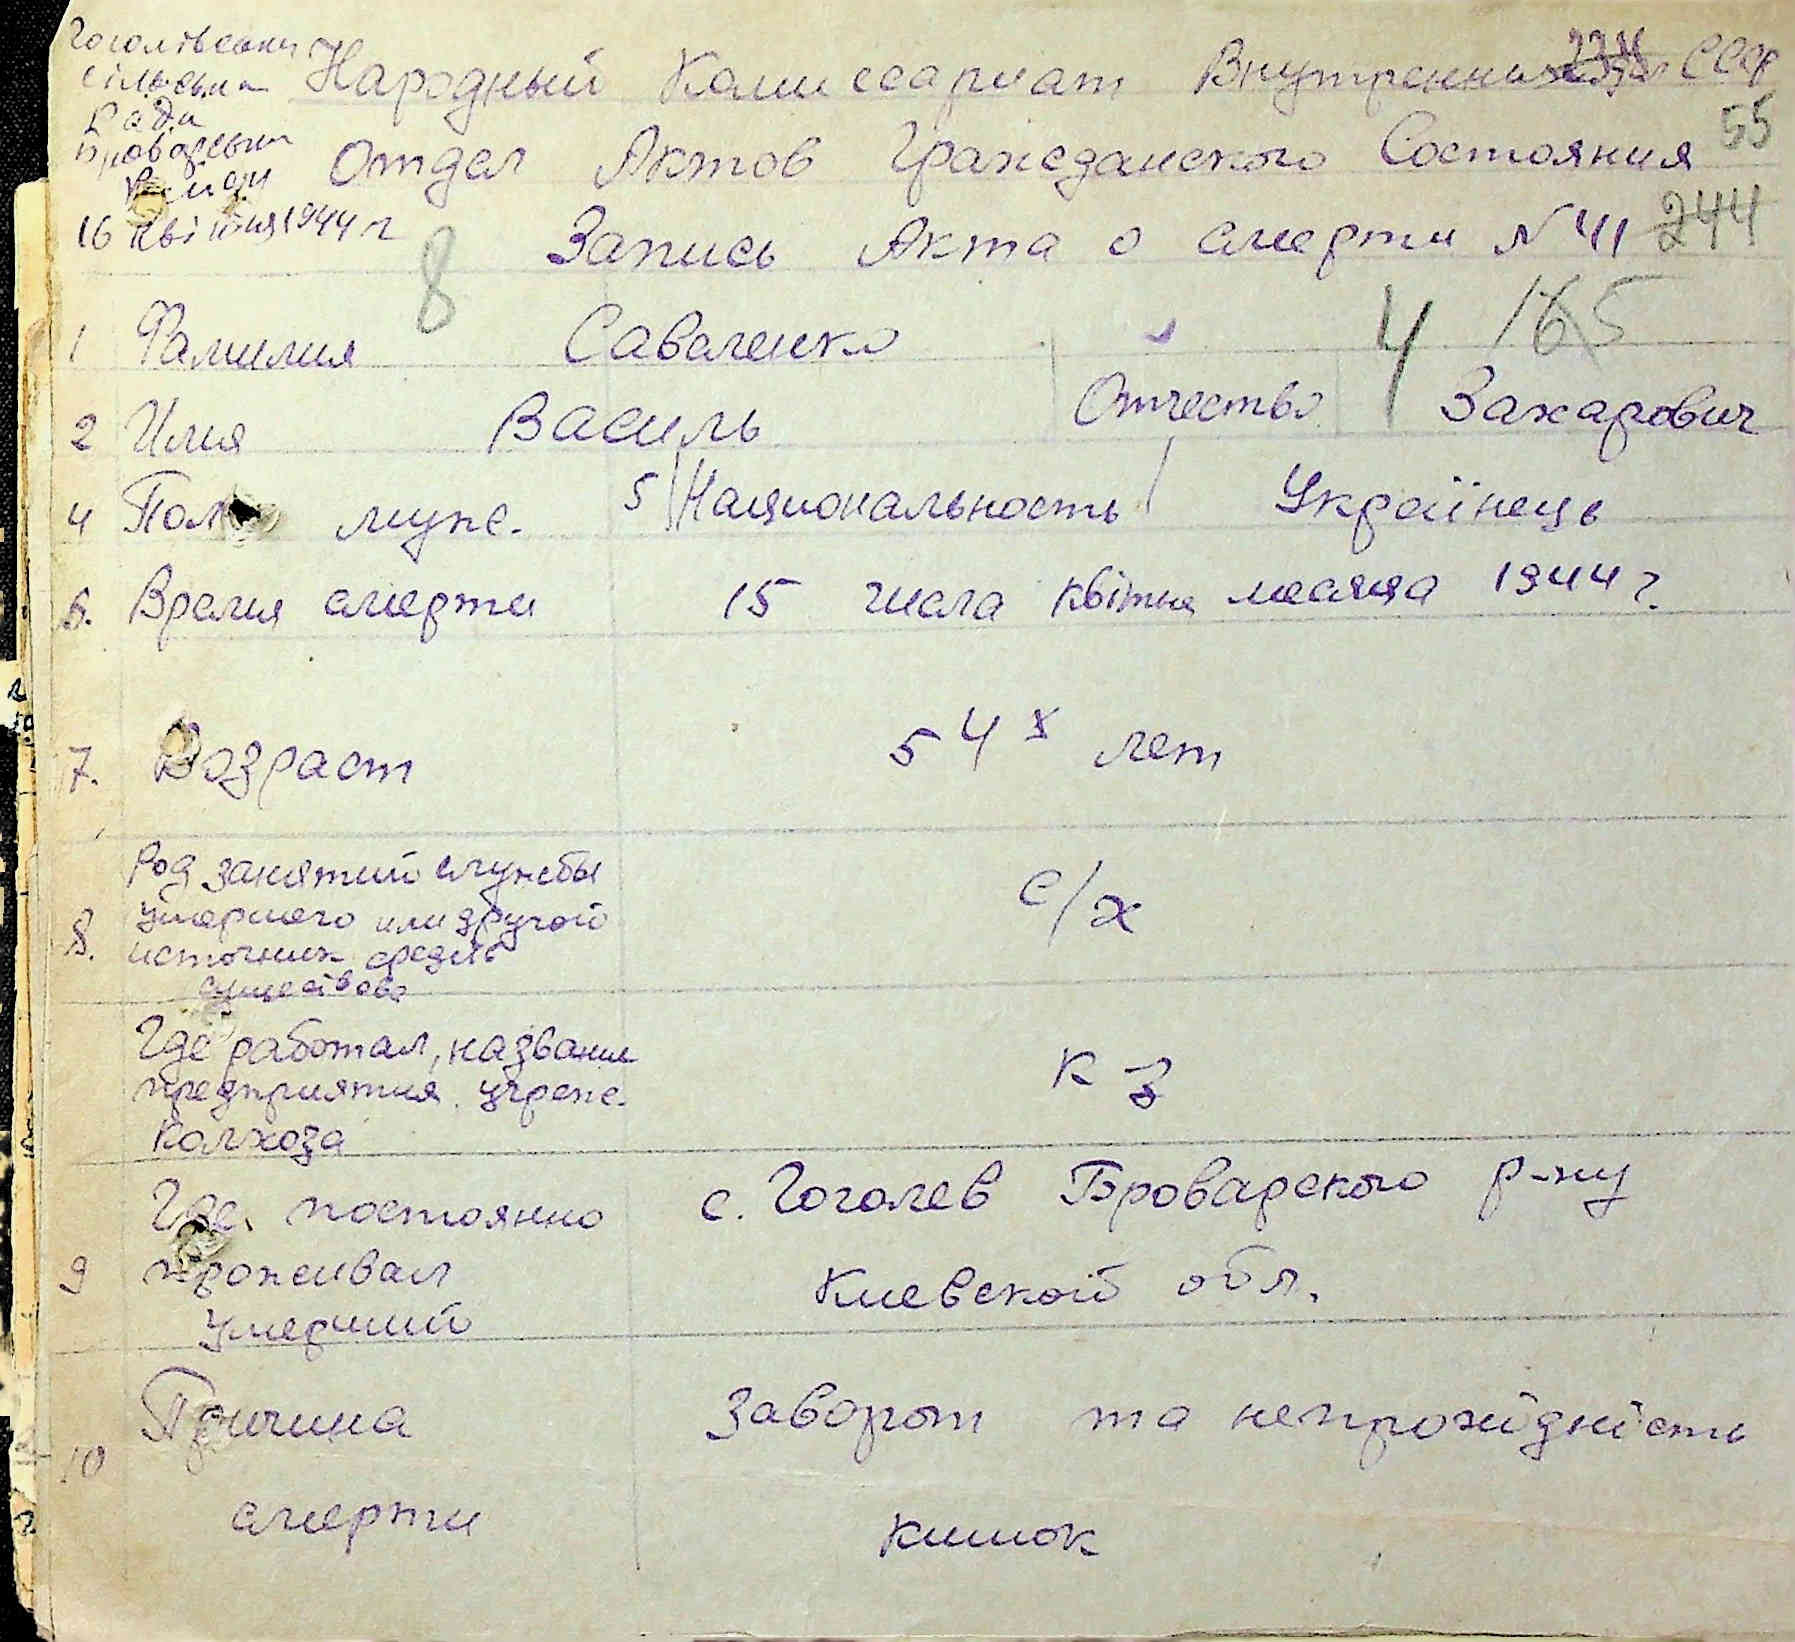 Гоголівська
сільська
Рада
Броварський
Район
16 квітня 1944 г
Народный Комиссариат Внутренних Дел СССР
55
Отдел Актов Гражданского Состояния
Запись Акта о смерти N 41 244
8
4 165
1 Фамилия Саваленко
2 Имя Василь Отчество Захарович
4 Пол муж. 5 Национальность Українець
6. Время смерти 15 числа квітня месяца 1944 г.
7. Возраст 54х лет
Род занятий службы
8. умершего или другой с/х
источник средств
существов
Где работал, название
предприятия учреж. к-з
Колхоза
Где постоянно с. Гоголев Броварского р-ну
9 проживал Киевской обл.
Умерший
10 Причина Заворот та непрохідність
смерти кишок